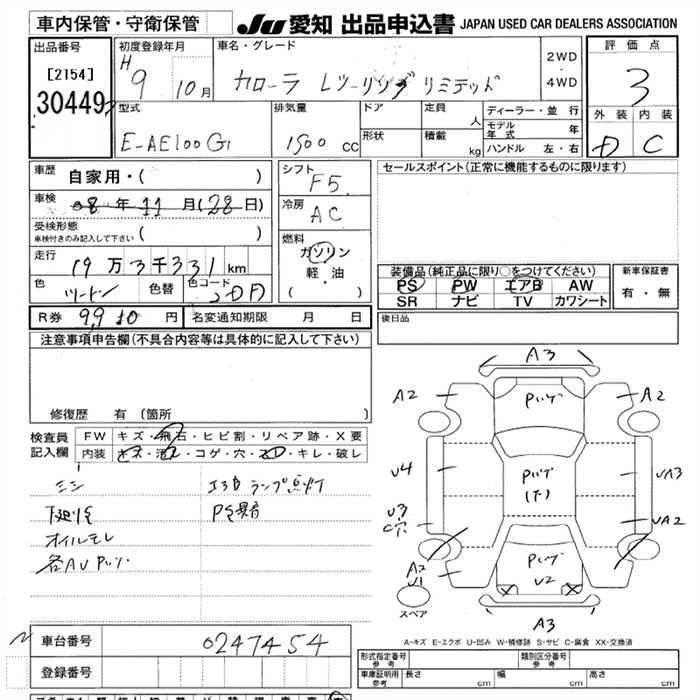 車内保管・守衛保管
JU 愛知 出品申込書 JAPAN USED CAR DEALERS ASSOCIATION
出品番号
[2154]
30449
初度登録年月
H 9 10月
車名・グレード
カローラ Lツーリング リミテッド
2WD
・
4WD
評価点
3
外装 内装
D C
型式
E-AE100G
排気量
1500 cc
ドア
形状
定員
人
積載
kg
ディーラー・並行
モデル年式 年
ハンドル 左・右
車歴
自家用・( )
車検
08年11月(28日)
受検形態
車検付きのみ記入して下さい ( )
走行
19万3千331km
色
ツートン
色替
色コード
2DA
R券 9,910 円
名変通知期限 月 日
シフト
F5
冷房
AC
燃料
ガソリン
軽・油
( )
セールスポイント(正常に機能するものに限ります)
装備品(純正品に限り○をつけてください)
PS PW エアB AW
SR ナビ TV カワシート
新車保証書
有・無
後日品
注意事項申告欄(不具合内容等は具体的に記入して下さい)
修復歴 有 (箇所 )
検査員記入欄
FW キズ・飛石・ヒビ割・リペア跡・X要
内装 キズ・汚れ・コゲ・穴・スレ・キレ・破レ
エアB ランプ点灯
下廻り
PS異音
オイルモレ
各AU
A3
A2
A2
U4
UA3
U3
C穴
UA2
A2
U1
U2
A3
スペア
A-キズ E-エクボ U-凹み W-補修跡 S-サビ C-腐食 XX-交換済
車台番号
0247454
登録番号
形式指定番号
参考
類別区分番号
参考
車庫証明用
参考
長さ cm
幅 cm
高さ cm